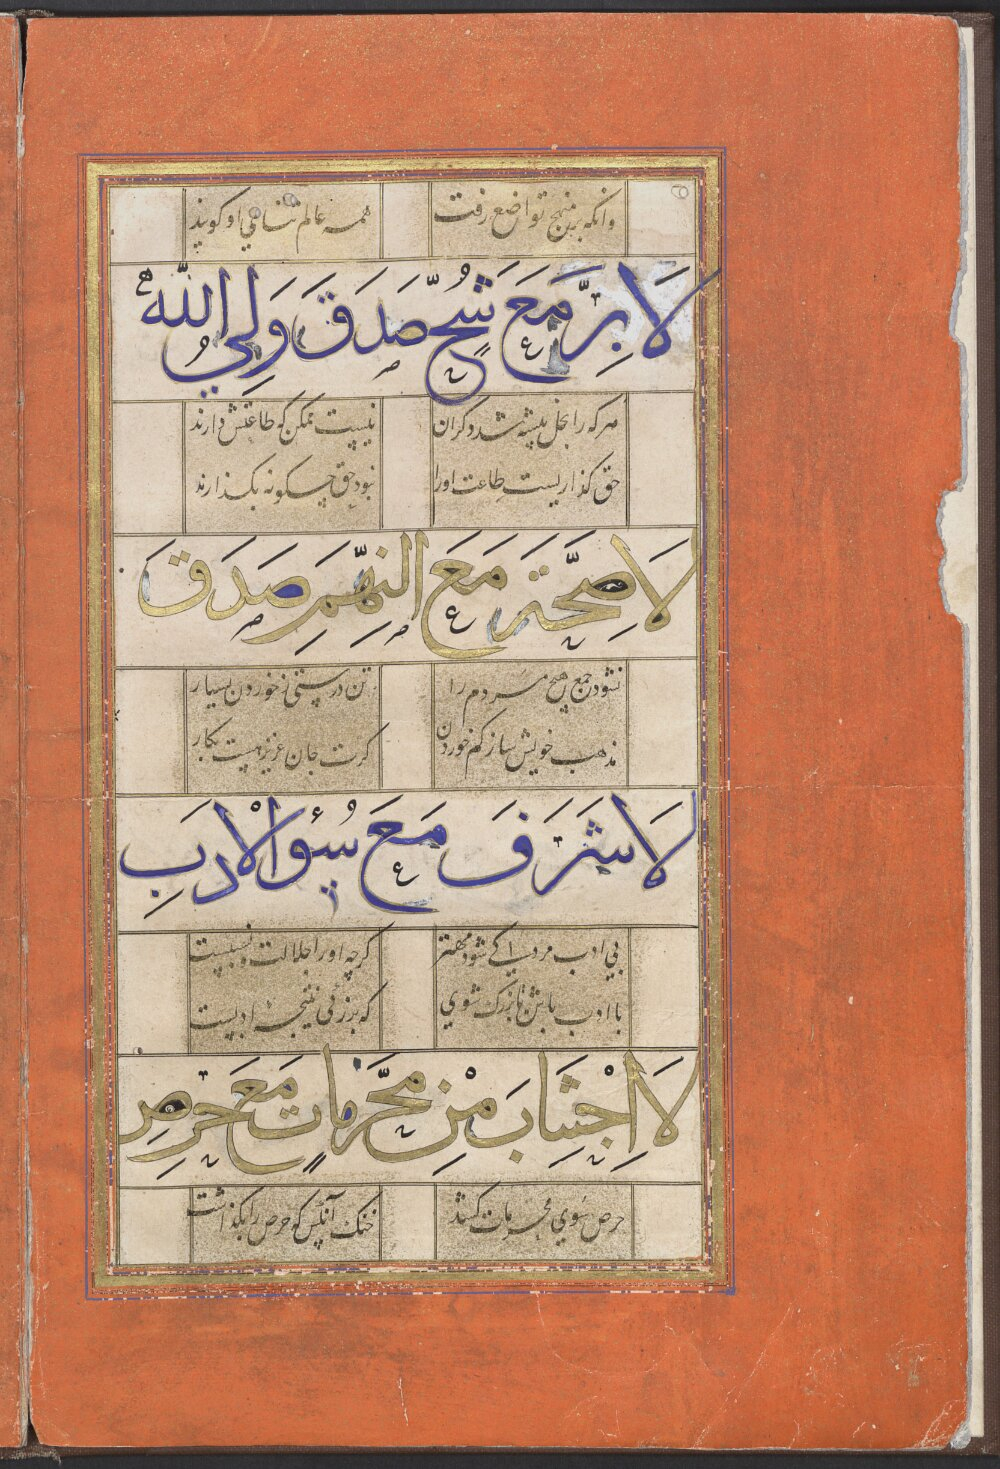 وانکه بر منهج تواضع رفت همه عالم ثناهي او کویند
لَا بِرَّ مَعَ شُحٍّ صَدَقَ وَلِيُّ اللّٰه
هرکه را بخل پیشه شد دکران نیست ممکن که طاعتش دارند
حق کذاریست طاعت اورا نبود حق چکونه بکذارند
لَا صِحَّةَ مَعَ النَّهَمِ صَدَقَ
نشود جمع هیچ مردم را تن درستي ز خوردن بسیار
مذهب خویش ساز کم خوردن کرت جان عزیز هست بکار
لَا شَرَفَ مَعَ سُوءِ الْادَبِ
بي ادب مرد کے شود مهتر کرچه اورا جلالت و نسبیست
با ادب باش تا بزرک شوي که بزرکي نتیجهٔ ادبیست
لَا اِجْتِنَابَ مِنْ مُحَرَّمَاتٍ مَعَ حِرْصٍ
حرص سوي محرمات کشد خنک آنکس که حرص را بکذاشت